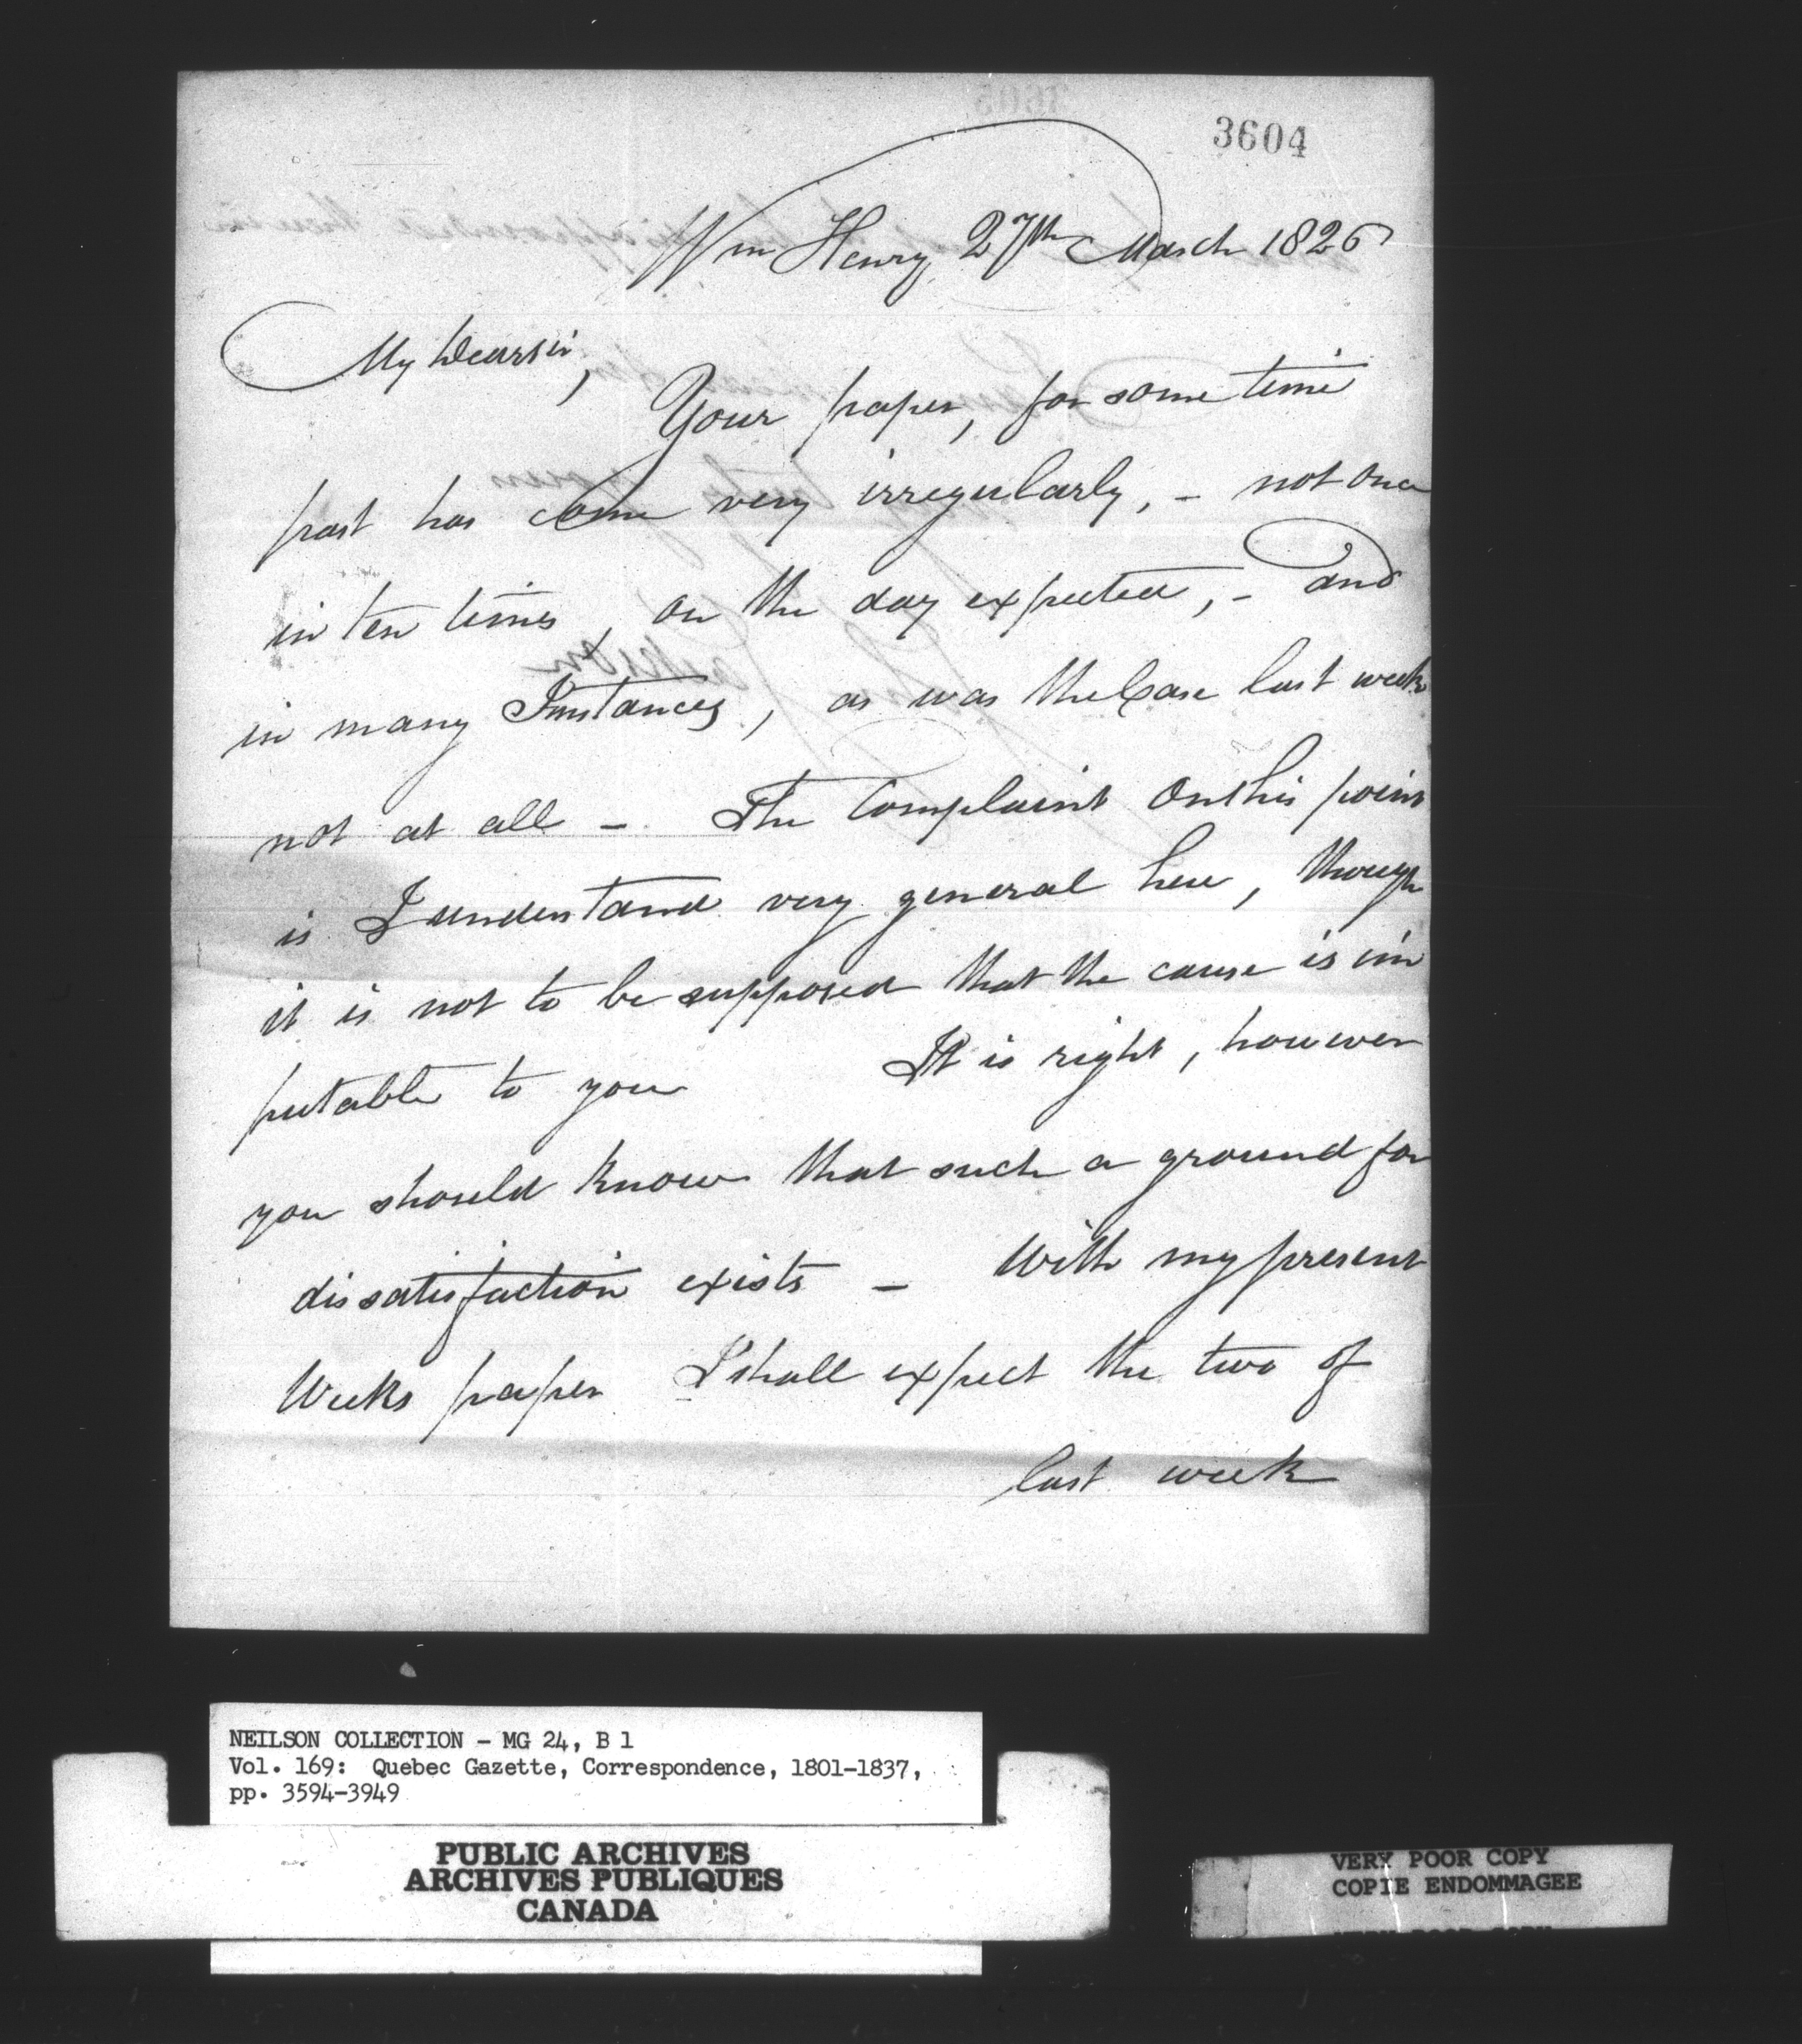 3604
Wm Henry, 27th March 1826
My Dear sir,
Your paper, for some time
past has come very irregularly, - not once
in ten times, on the day expected, - and
in many Instances, as was the Case last week
not at all - The Complaint On this point
is I understand very general here, though
it is not to be supposed that the cause is im
putable to you It is right, however
you should know that such a ground for
dissatisfaction exists - With my present
Weeks paper I shall expect the two of
last week
NEILSON COLLECTION - MG 24, B 1
Vol. 169: Quebec Gazette, Correspondence, 1801-1837,
pp. 3594-3949
PUBLIC ARCHIVES
ARCHIVES PUBLIQUES
CANADA
VERY POOR COPY
COPIE ENDOMMAGEE